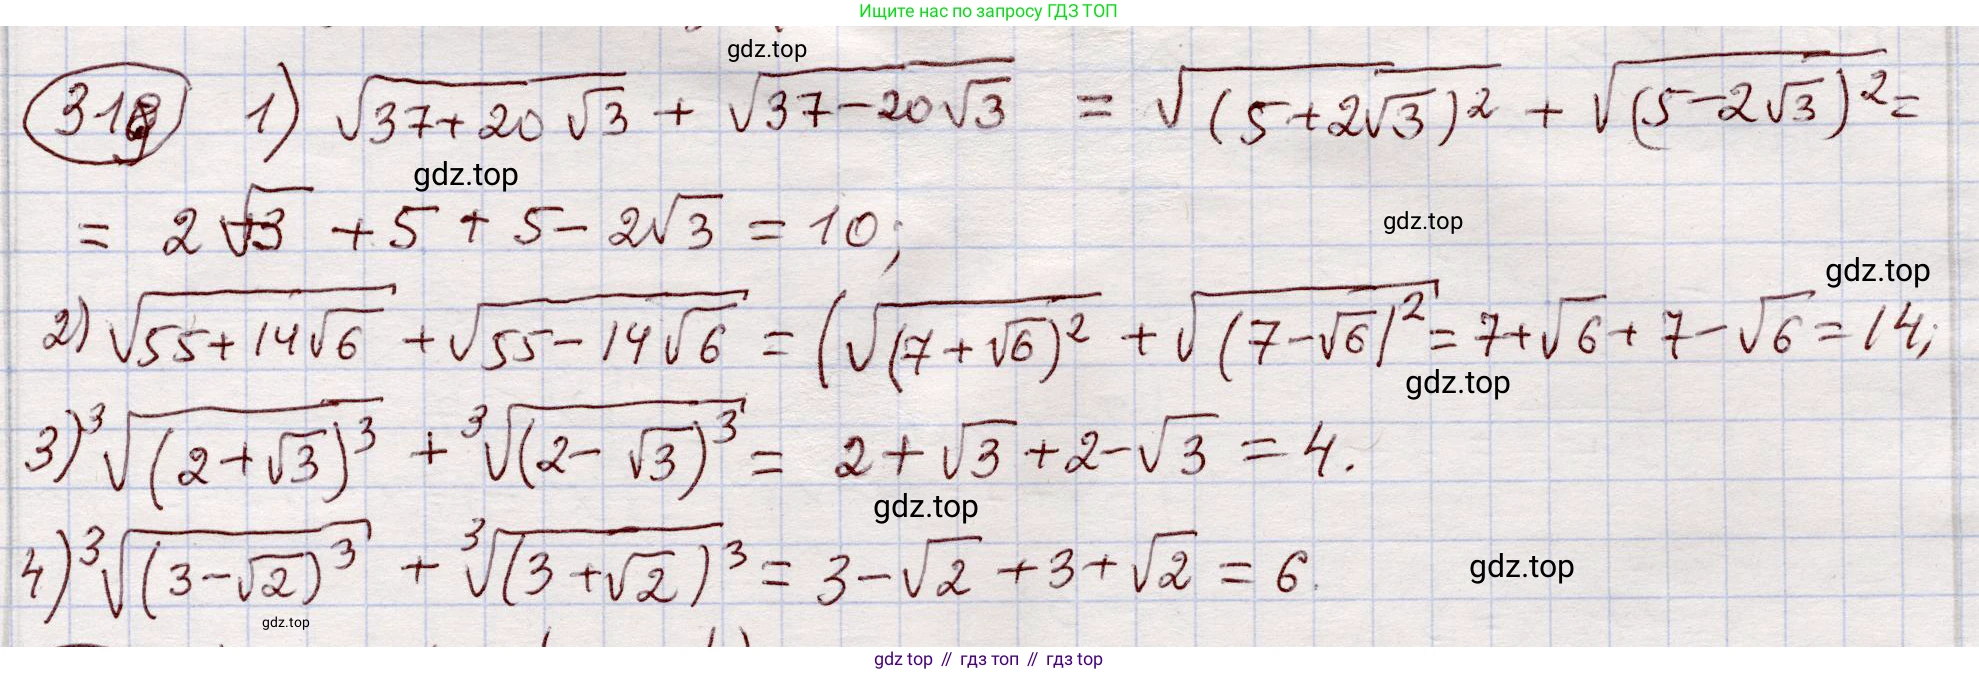 Ищите нас по запросу ГДЗ ТОП
gdz.top
319 1) √(37+20√3) + √(37-20√3) = √((5+2√3)²) + √((5-2√3)²) =
gdz.top
= 2√3 + 5 + 5 - 2√3 = 10;
gdz.top
gdz.top
2) √(55+14√6) + √(55-14√6) = (√((7+√6)²) + √((7-√6)²) = 7+√6 + 7-√6 = 14;
gdz.top
3) ³√((2+√3)³) + ³√((2-√3)³) = 2+√3+2-√3 = 4.
gdz.top
4) ³√((3-√2)³) + ³√((3+√2)³) = 3-√2+3+√2 = 6.
gdz.top
gdz.top
gdz top // гдз топ // гдз top